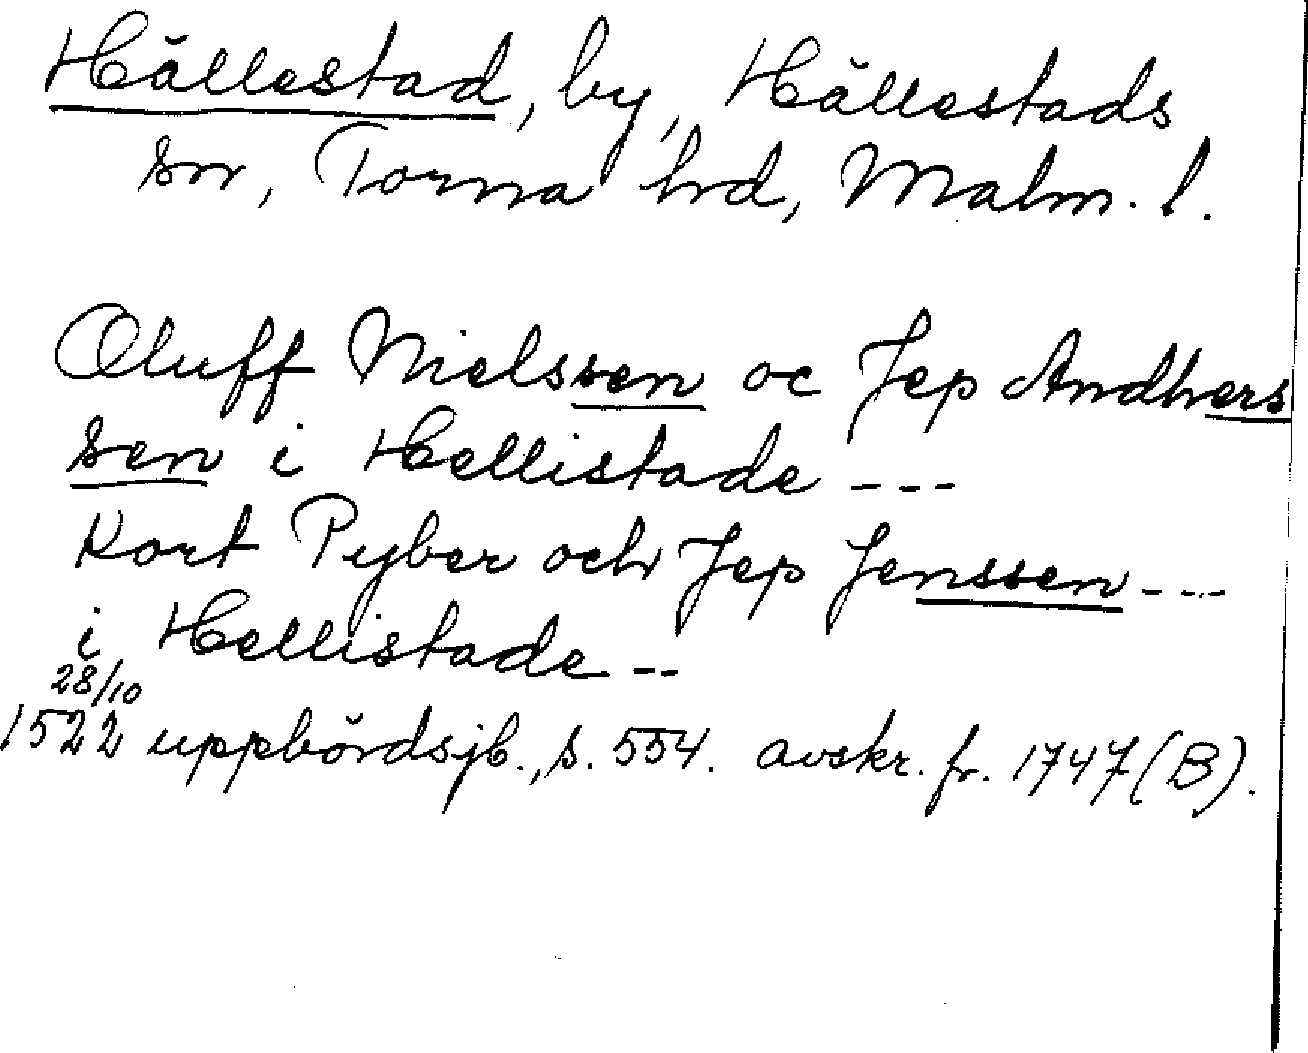 Hällestad, by, Hällestads
sn, Torna hd, Malm. l.
Oluff Nielssen oc Jep Andhers
sen i Hellistade ---
Kort Pyber och Jep Jenssen ---
i Hellistade --
28/10
1522 uppbördsjb., s. 554. avskr. fr. 1747 (B).